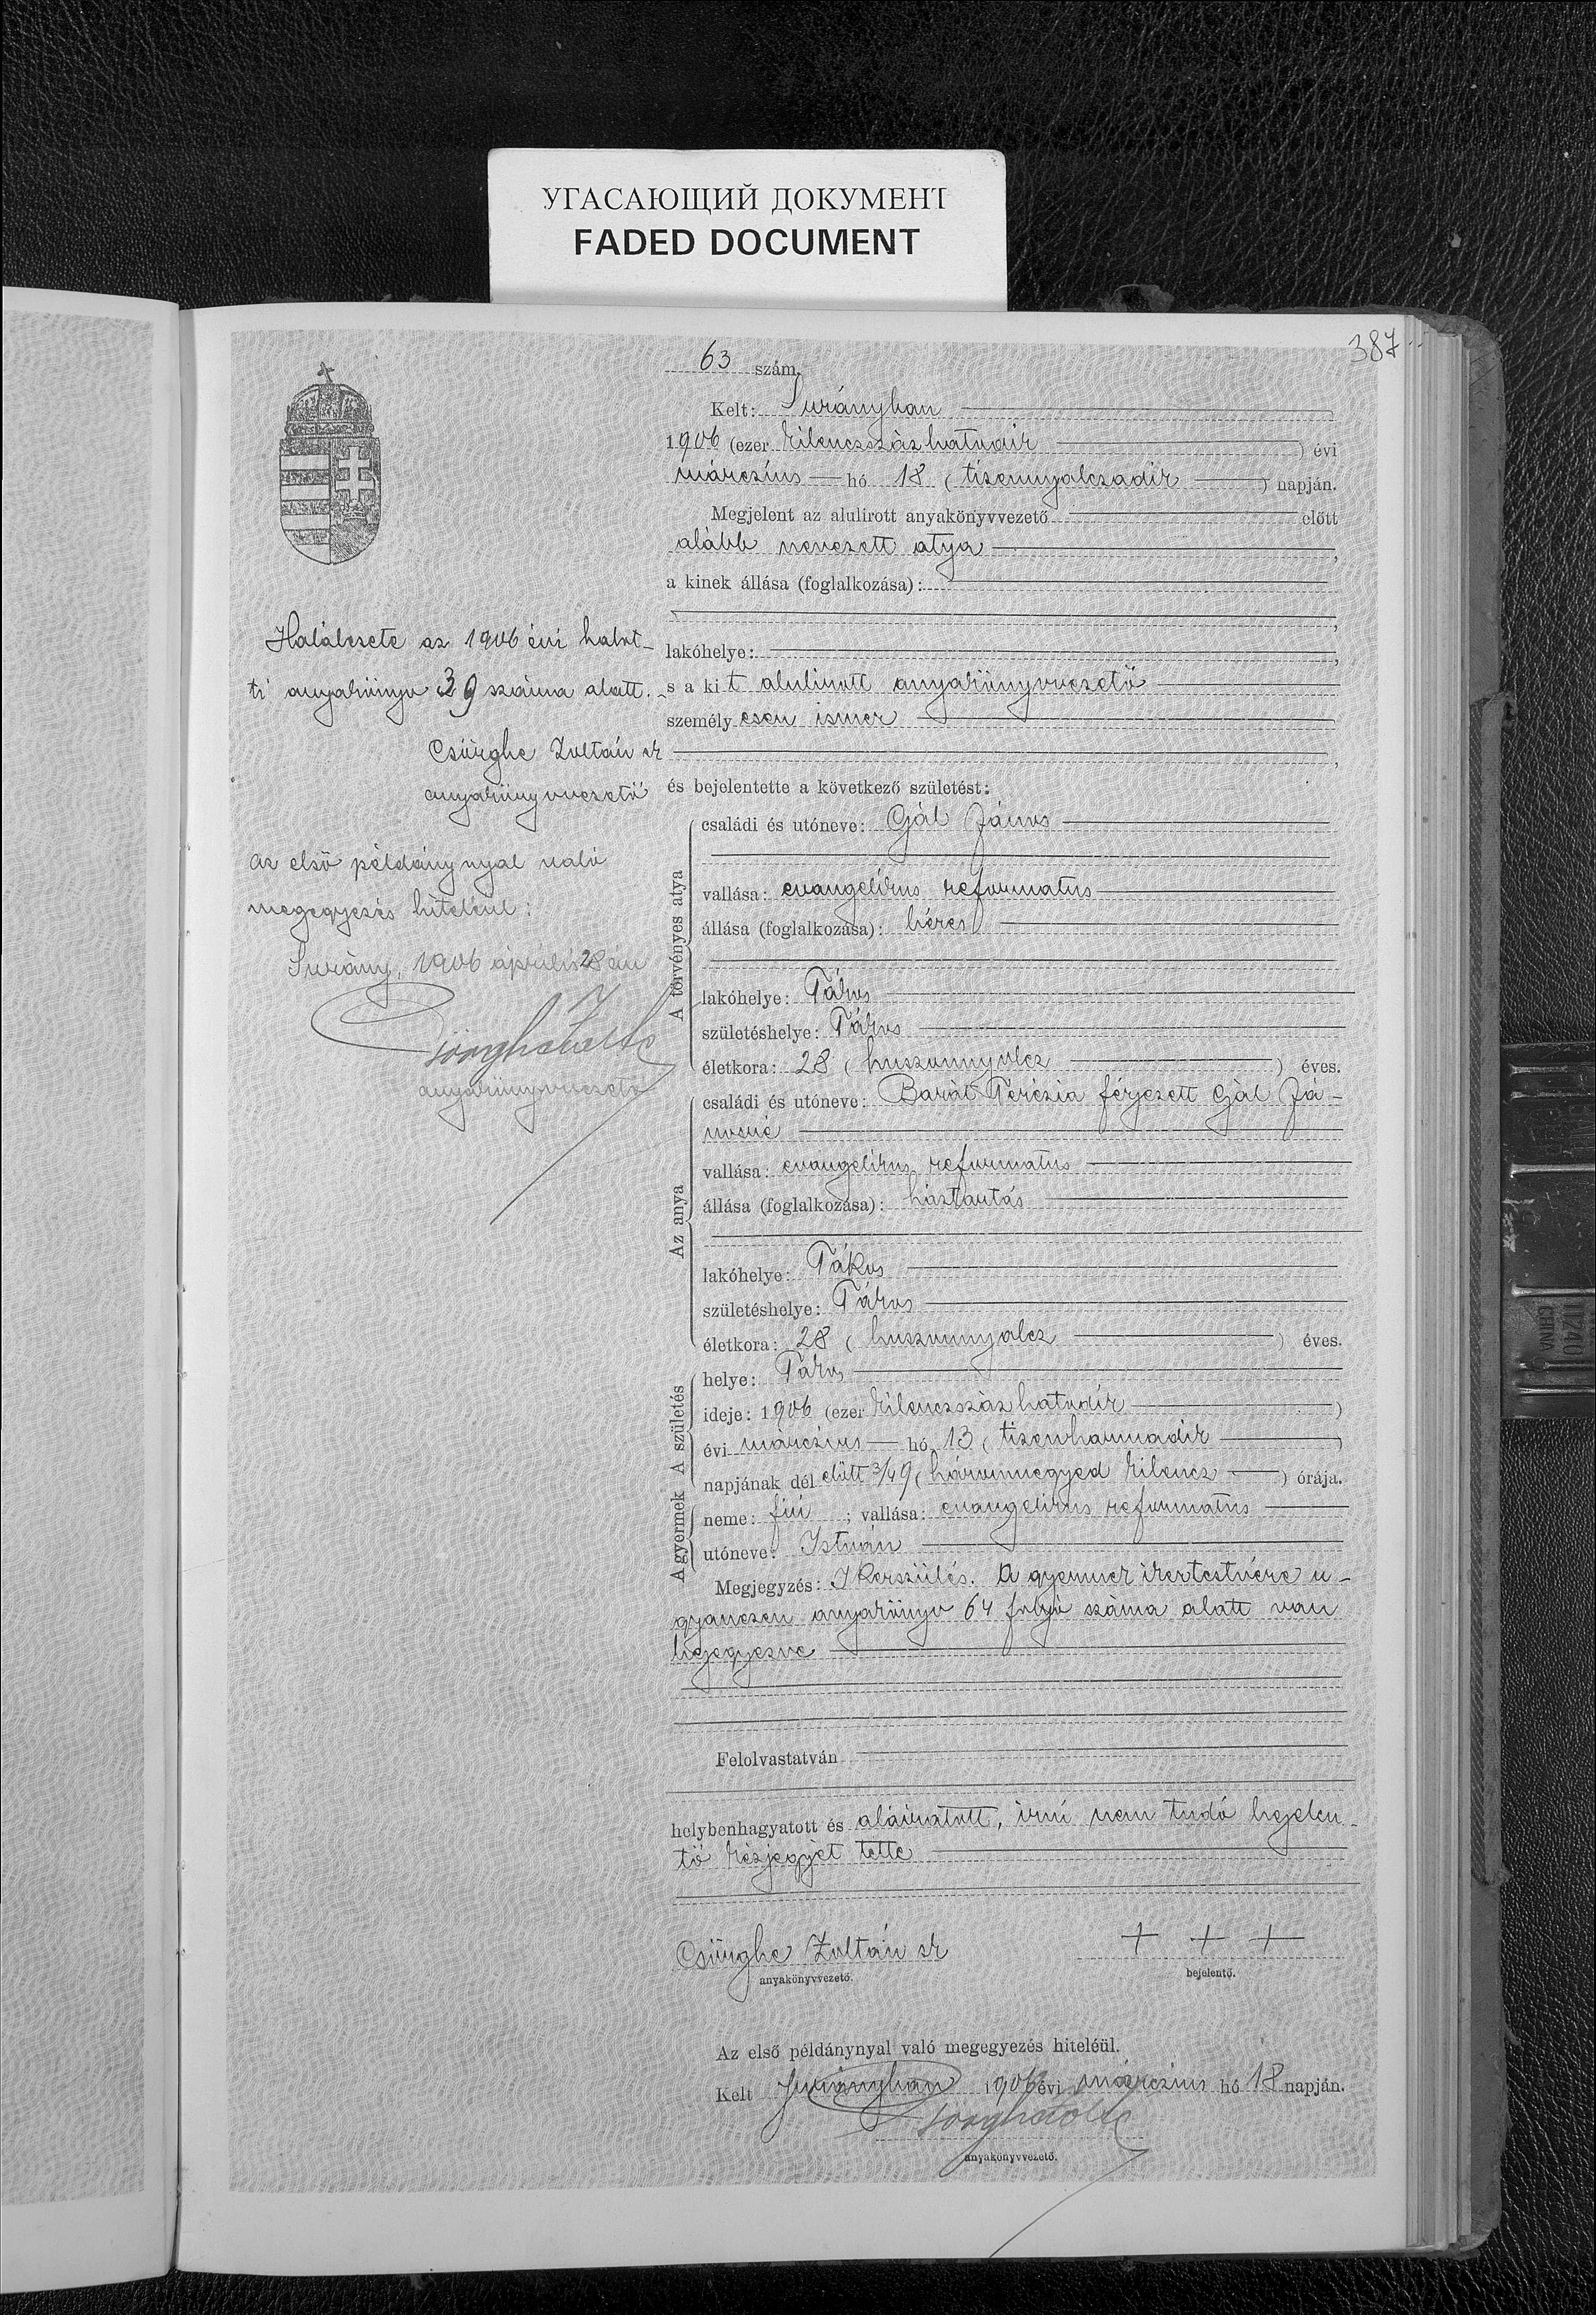 УГАСАЮЩИЙ ДОКУМЕНТ
FADED DOCUMENT
387
63 szám.
Kelt: Surányban
1906 (ezer kilenczszázhatodik ) évi
márczius hó 18 ( tizennyolczadik ) napján.
Megjelent az alulirott anyakönyvvezető előtt
alább nevezett atya ,
a kinek állása (foglalkozása):
,
lakóhelye: ,
s a kit alulirott anyakönyvvezető
személyesen ismer
,
és bejelentette a következő születést:
A törvényes atya
családi és utóneve: Gál János
vallása: evangelikus reformatus
állása (foglalkozása): béres
lakóhelye: Tákos
születéshelye: Tákos
életkora: 28 ( huszonnyolcz ) éves.
Az anya
családi és utóneve: Barát Terézia férjezett Gál Já-
nosné
vallása: evangelikus reformatus
állása (foglalkozása): háztartás
lakóhelye: Tákos
születéshelye: Tákos
életkora: 28 ( huszonnyolcz ) éves.
A születés
helye: Tákos
ideje: 1906 (ezer kilenczszázhatodik )
évi márczius hó 13 ( tizenharmadik )
napjának dél előtt 3/4 9 ( háromnegyed kilencz ) órája.
A gyermek
neme: fiú ; vallása: evangelikus reformatus
utóneve: István
Megjegyzés: Ikerszülés. A gyermek ikertestvére u-
gyanezen anyakönyv 64 folyó száma alatt van
bejegyezve
Felolvastatván
helybenhagyatott és aláiratott, irni nem tudó bejelen-
tő kézjegyét tette
Csörghe Zoltán sk + + +
anyakönyvvezető. bejelentő.
Az első példánynyal való megegyezés hiteléül.
Kelt Surányban 1906 évi márczius hó 18 napján.
Csörghe Zoltán
anyakönyvvezető.
Halálesete az 1906 évi halot-
ti anyakönyv 39 száma alatt.
Csörghe Zoltán sk
anyakönyvvezető
Az első példánynyal való
megegyezés hiteléül:
Surány, 1906 április 28 án
Csörghe Zoltán
anyakönyvvezető